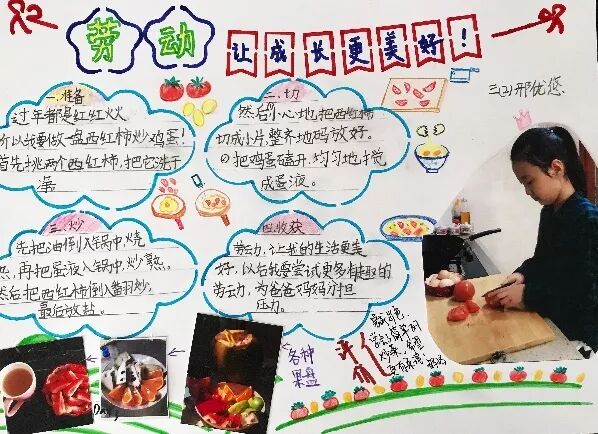 劳动 让成长更美好！
三(2)邢优悠
一.准备
过年都是红红火火
所以我要做一盘西红柿炒鸡蛋！
首先挑两个西红柿，把它洗干
净。
二.切
然后小心地把西红柿
切成小片，整齐地码放好。
把鸡蛋磕开，均匀地搅
成蛋液。
三.炒
先把油倒入锅中，烧
热，再把蛋液入锅中，炒熟。
然后把西红柿倒入翻炒，
最后放盐。
四.收获
劳动力，让我的生活更美
好，以后我要尝试更多有趣的
劳动，为爸爸妈妈分担
压力。
各种
果盘
评价